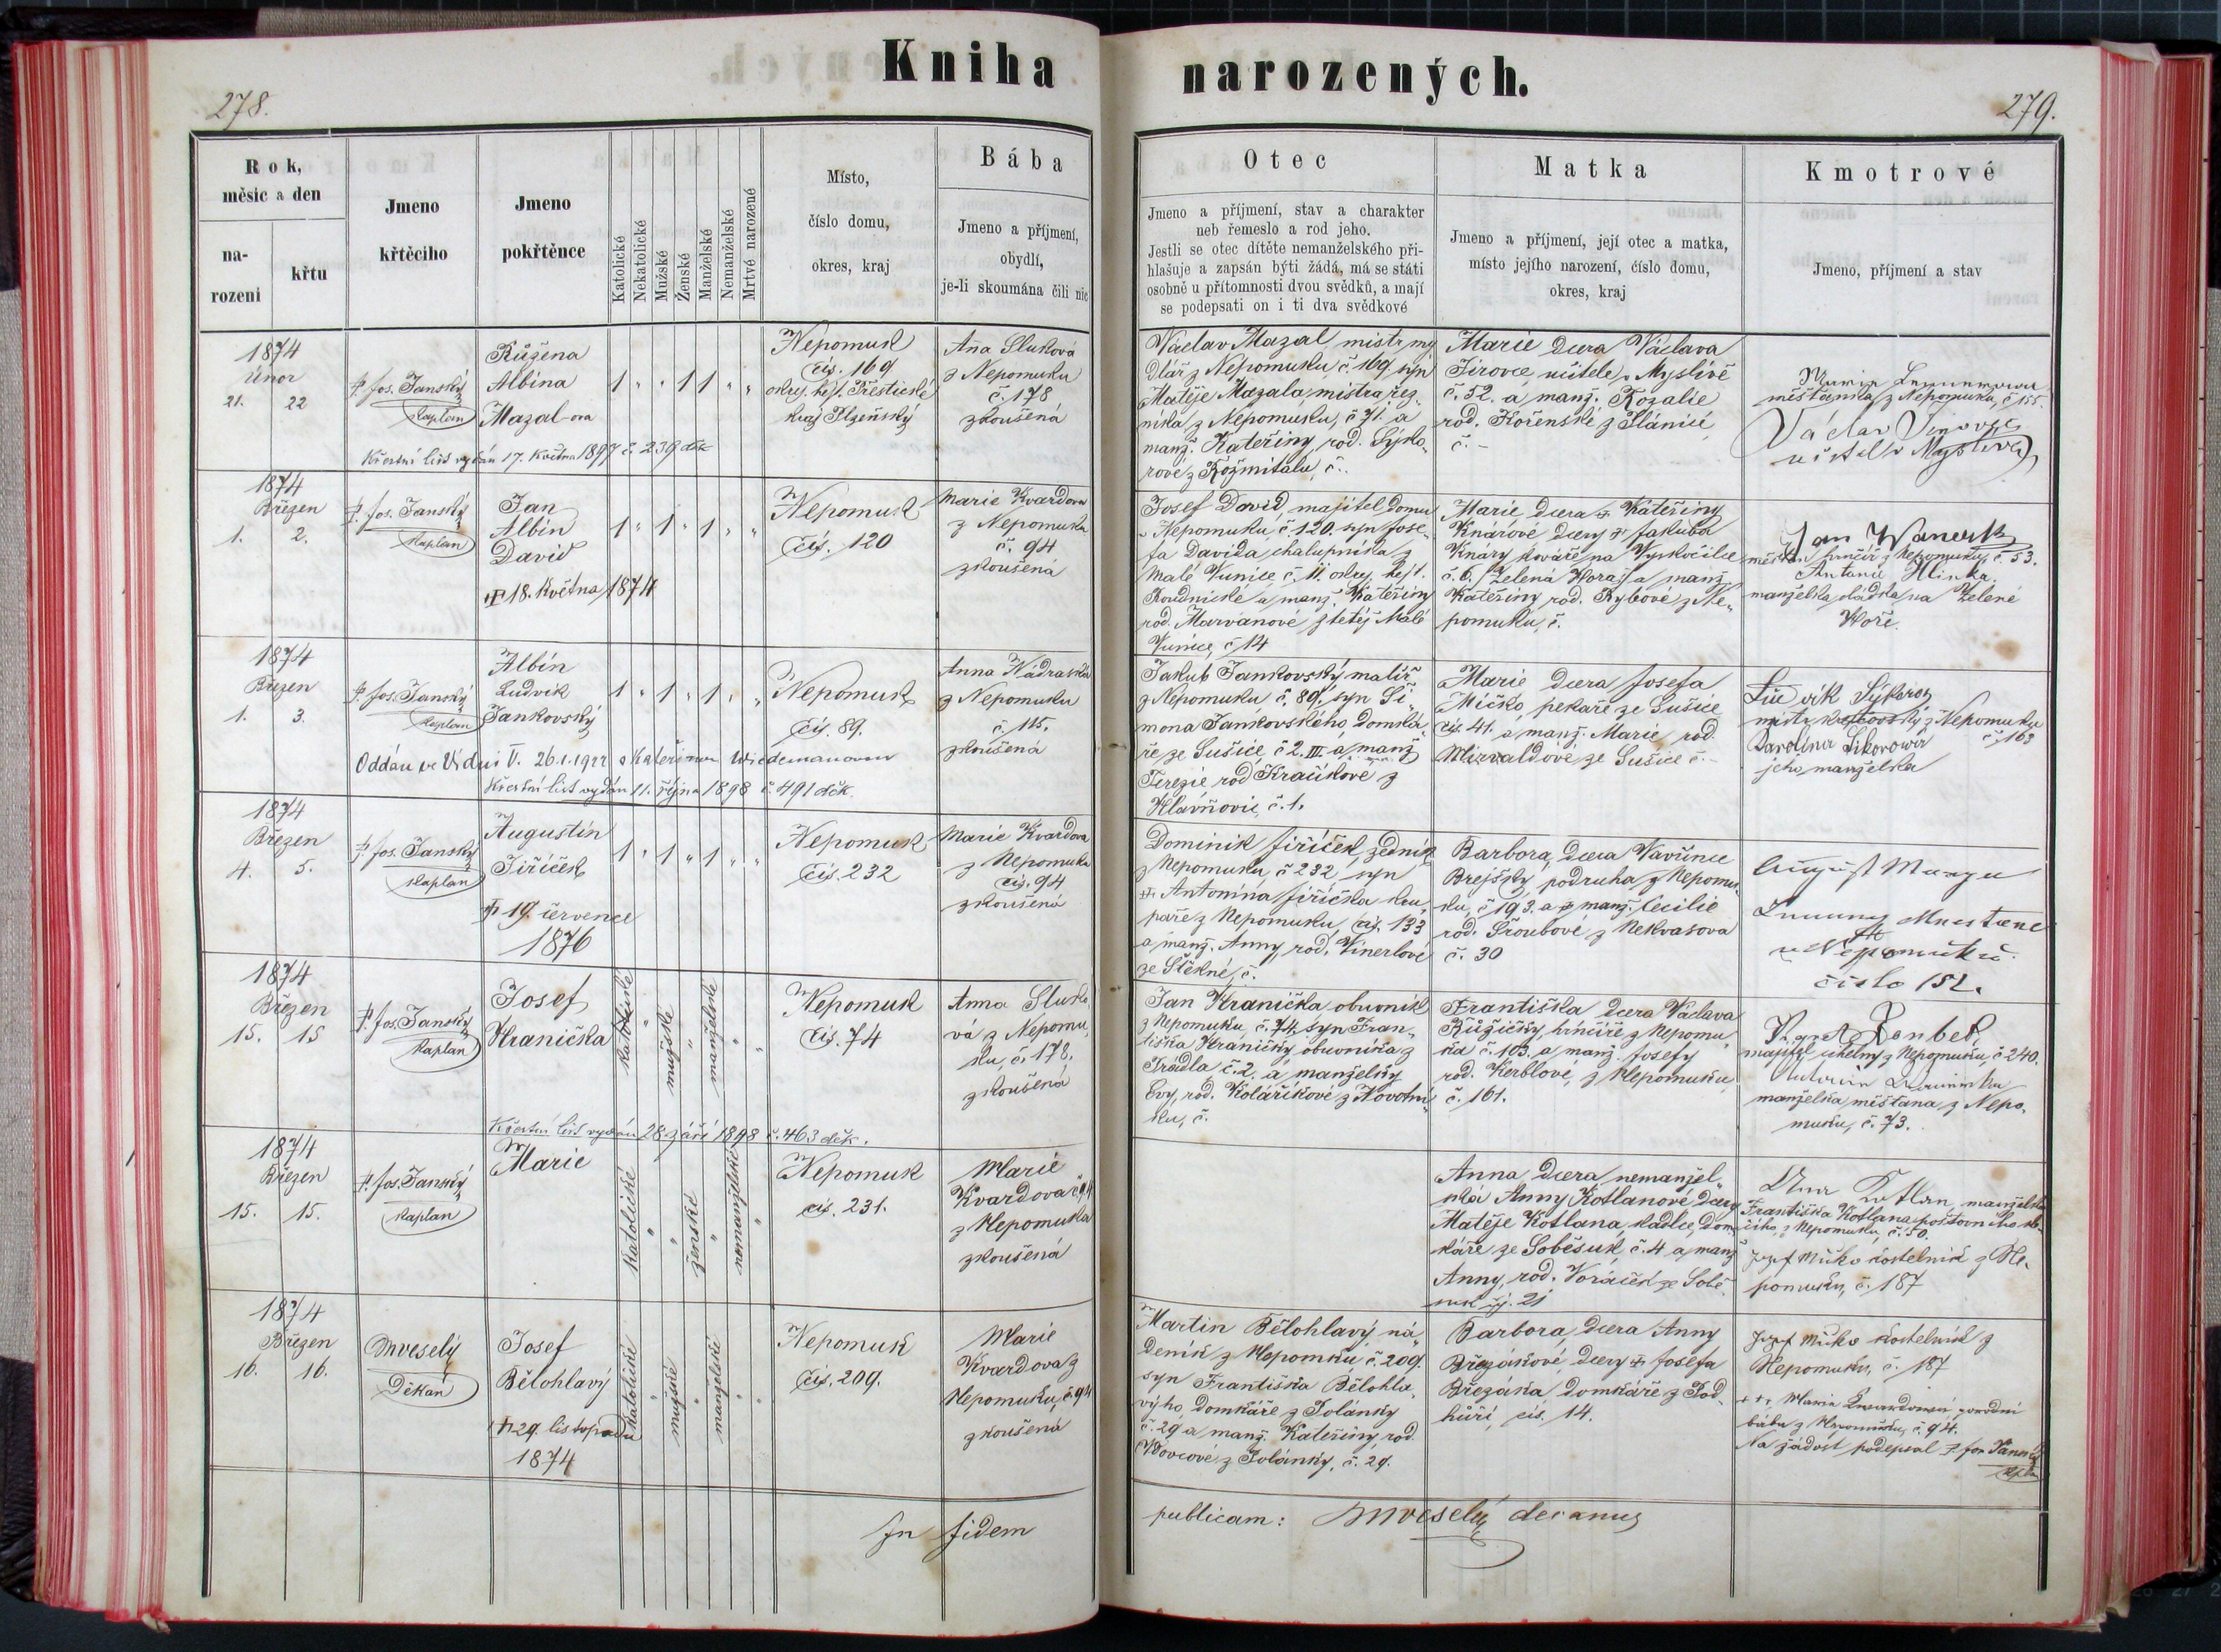 Kniha narozených.
278.
279.
Rok,
měsíc a den
na-
rozeni
křtu
Jmeno
křtěciho
Jmeno
pokřtěnce
Katolické
Nekatolické
Mužské
Ženské
Manželské
Nemanželské
Mrtvé narozené
Místo,
číslo domu,
okres, kraj
Bába
Jmeno a příjmení,
obydlí,
je-li skoumána čili nic
Otec
Jmeno a příjmení, stav a charakter
neb řemeslo a rod jeho.
Jestli se otec dítěte nemanželského při-
hlašuje a zapsán býti žádá, má se státi
osobně u přítomnosti dvou svědků, a mají
se podepsati on i ti dva svědkové
Matka
Jmeno a příjmení, její otec a matka,
místo jejího narození, číslo domu,
okres, kraj
Kmotrové
Jmeno, příjmení a stav
1874
únor
21. 22
P. Jos. Janský
Kaplan
Růžena
Albína
Mazal-ova
1 " " 1 1 " "
Nepomuk
čís. 169
okres. hejt. Přestické
kraj Plzeňský
Aña Sluková
z Nepomuku
č. 178
zkoušená
Křestní list vydán 17. května 1897 č. 239 děk
Václav Mazal mistr my
dlář z Nepomuku č. 169. syn
Matěje Mazala, mistra řez.
níka z Nepomuku, č 71. a
manž. Kateřiny rod. Sýko.
rové z Rožmitálu, č..
Marie dcera Václava
Jirovce, učitele v Myslívě
č. 52. a manž. Rozalie
rod. Kořenské z Plánice
č. -
měšťanka z Nepomuka, č 155.
Václav Jirovec
učitel v Myslívě
1874
Březen
1. 2.
P. Jos. Janský
Kaplan
Jan
Albín
David
† 18. Května 1874
1 " 1 " 1 " "
Nepomuk
čís. 120
Marie Kvardova
z Nepomuka
č. 94
zkoušená
Josef David, majitel domu
v Nepomuku č 120. syn Jose-
fa Davida chalupníka z
Malé Vunice č. 11. okrj. hejt.
Roudnické a manž. Kateřiny
rod. Marvanové z tétéj Malé
Vunice, č 14
Marie dcera † Kateřiny
Knárové dcery † Jakuba
Knáry kováře na Vyskočilce
č. 6. /Zelená Hora/ a manž.
Kateřiny rod. Rybové z Ne-
pomuku, č.
Jan Wanerk
měšťan hrnčíř z Nepomuku, č. 53.
Antonie Hlinka
manželka oládka na Zelené
Hoře.
1874
Březen
1. 3.
P. Jos. Janský
Kaplan
Albín
Ludvík
Jankovský
1 " 1 " 1 " "
Nepomuk
čís. 89.
Anna Nádraská
z Nepomuku
č. 115.
zkoušená
Oddán ve Vídni V. 26.1.1922 s Kateřinou Wiedemanovou
Křestní list vydán 11. října 1898 č. 491 děk.
Jakub Jankovský malíř
z Nepomuku, č. 89. syn Ši-
mona Jankovského, domká-
ře ze Sušice, č 2. III a manž
Terezie rod Kraučkové z
Hlavňovic, č. 1.
Marie dcera Josefa
Mičko, pekaře ze Sušice
čís. 41. a manž. Marie rod.
Mirvaldové ze Sušice č. -
Ludvík Sýkora
mistr krejčovský z Nepomuku
č. 163
Karolína Sikorowá
jeho manželka
1874
Březen
4. 5.
P. Jos. Janský
Kaplan
Augustín
Jiříček
† 19 července
1876
1 " 1 " 1 " "
Nepomuk
čís. 232
Marie Kvardova
z Nepomuka
čís. 94
zkoušená
Dominik Jiříček, zedník
z Nepomuku, č 232 syn
† Antonína Jiříčka kru.
paře z Nepomuku, čís. 133
a manž. Anny, rod. Vinerlové
ze Štěkně, č.
Barbora, dcera Vavřince
Brejšky, podruha z Nepomu-
ku, č 193. a † manž. Cecilie
rod. Šroubové z Nekvasova
č. 30
August
v Nepomuku
číslo 152.
1874
Březen
15. 15
P. Jos. Janský
Kaplan
Josef
Hranička
katolické
"
mužské
"
manželské
"
"
Nepomuk
čís. 74
Anna Sluko
vá z Nepomu.
ku, č. 178.
zkoušená
Křestní list vydán 28. září 1898 č. 463 děk.
Jan Hranička obuvník
z Nepomuku č. 74. syn Fran-
tiška Hraničky, obuvníka z
Prádla č. 2. a manželky
Evy, rod. Kolaříkové z Novotní
ku, č.
Františka dcera Václava
Růžičky, hrnčíře z Nepomu.
ka č. 103. a manž. Josefy
rod. Kerblové z Nepomuku
č. 161.
majitel cihelny z Nepomuku, č 240.
manželka měšťana z Nepo.
muku, č. 73.
1874
Březen
15. 15.
P. Jos. Janský
Kaplan
Marie
katolické
"
"
ženské
"
nemanželské
"
Nepomuk
čís. 231.
Marie
Kvardova č 94
z Nepomuka
zkoušená
Anna, dcera nemanžel-
ská Anny Kotlanové, dcery
Matěje Kotlana, tkadlce, dom
káře ze Soběsuk, č. 4 a manž
Anny, rod. Voráček ze Sobě-
suk čj. 21
Anna Kotlan, manželka
Františka Kotlana poštovního
z Nepomuku, č. 50.
Josef Míčko kostelník z Ne.
pomuku, č. 187
1874
Březen
16. 16.
M Veselý
Děkan
Josef
Bělohlavý
† 29. listopadu
1874
katolické
"
mužské
"
manželské
"
"
Nepomuk
čís. 209.
Marie
Kvardova z
Nepomuku, č 94
zkoušená
Martin Bělohlavý, ná-
deník z Nepomuku, č. 209.
syn Františka Bělohla-
výho domkáře z Polánky
č. 29 a manž. Kateřiny, rod
Vdovcové z Polánky, č. 29.
Barbora, dcera Anny
Březákové, dcery † Josefa
Březáka domkáře z Pod
hůří, čís. 14.
Josef Míčko kostelník z
Nepomuku, č. 187
+++ Marie Kvardová porodní
bába z Nepomuku, č. 94.
Na žádost podepsal P. Jos Janský
Kaplan
In fidem
publicam: M Veselý decanus